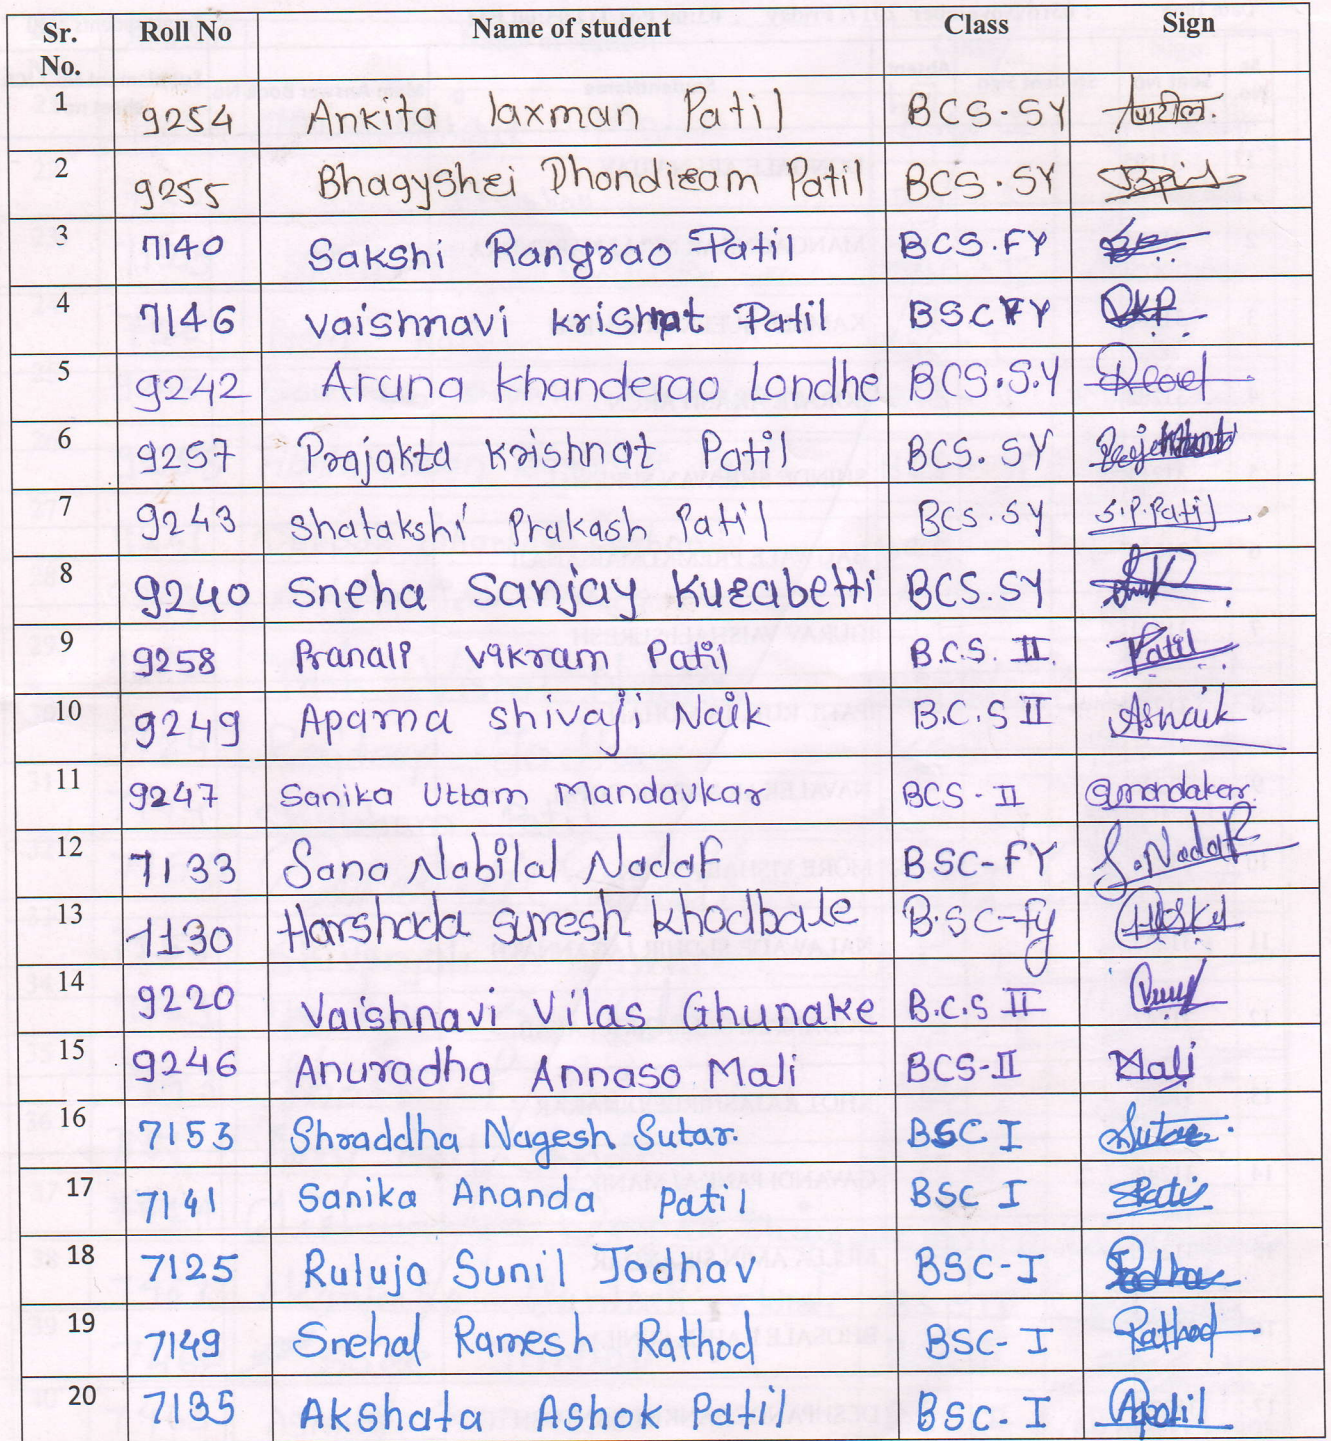 Sr. No. Roll No Name of student Class Sign
1 9254 Ankita laxman Patil BCS-SY पाटील.
2 9255 Bhagyshri Dhondiram Patil BCS.SY
3 7140 Sakshi Rangrao Patil BCS.FY
4 7146 vaishnavi krishnat Patil BSC FY VKP
5 9242 Aruna khanderao Londhe BCS.S.Y
6 9257 Prajakta krishnat Patil BCS. SY
7 9243 shatakshi Prakash Patil BCS.SY S.P.Patil
8 9240 Sneha Sanjay Kurabetti BCS.SY
9 9258 Pranali vikram Patil B.C.S. II. Patil
10 9249 Aparna shivaji Naik B.C.S II Asnaik
11 9247 Sanika Uttam Mandavkar BCS-II
12 7133 Sana Nabilal Nadaf BSC-FY S.Nadaf
13 7130 Harshada Suresh khodbale B.SC-Fy
14 9220 Vaishnavi Vilas Ghunake B.C.S II
15 9246 Anuradha Annaso Mali BCS-II Mali
16 7153 Shraddha Nagesh Sutar. BSC I Sutar
17 7141 Sanika Ananda Patil BSC-I
18 7125 Rutuja Sunil Jadhav BSC-I
19 7149 Snehal Ramesh Rathod BSC-I Rathod
20 7135 Akshata Ashok Patil BSC-I Apatil